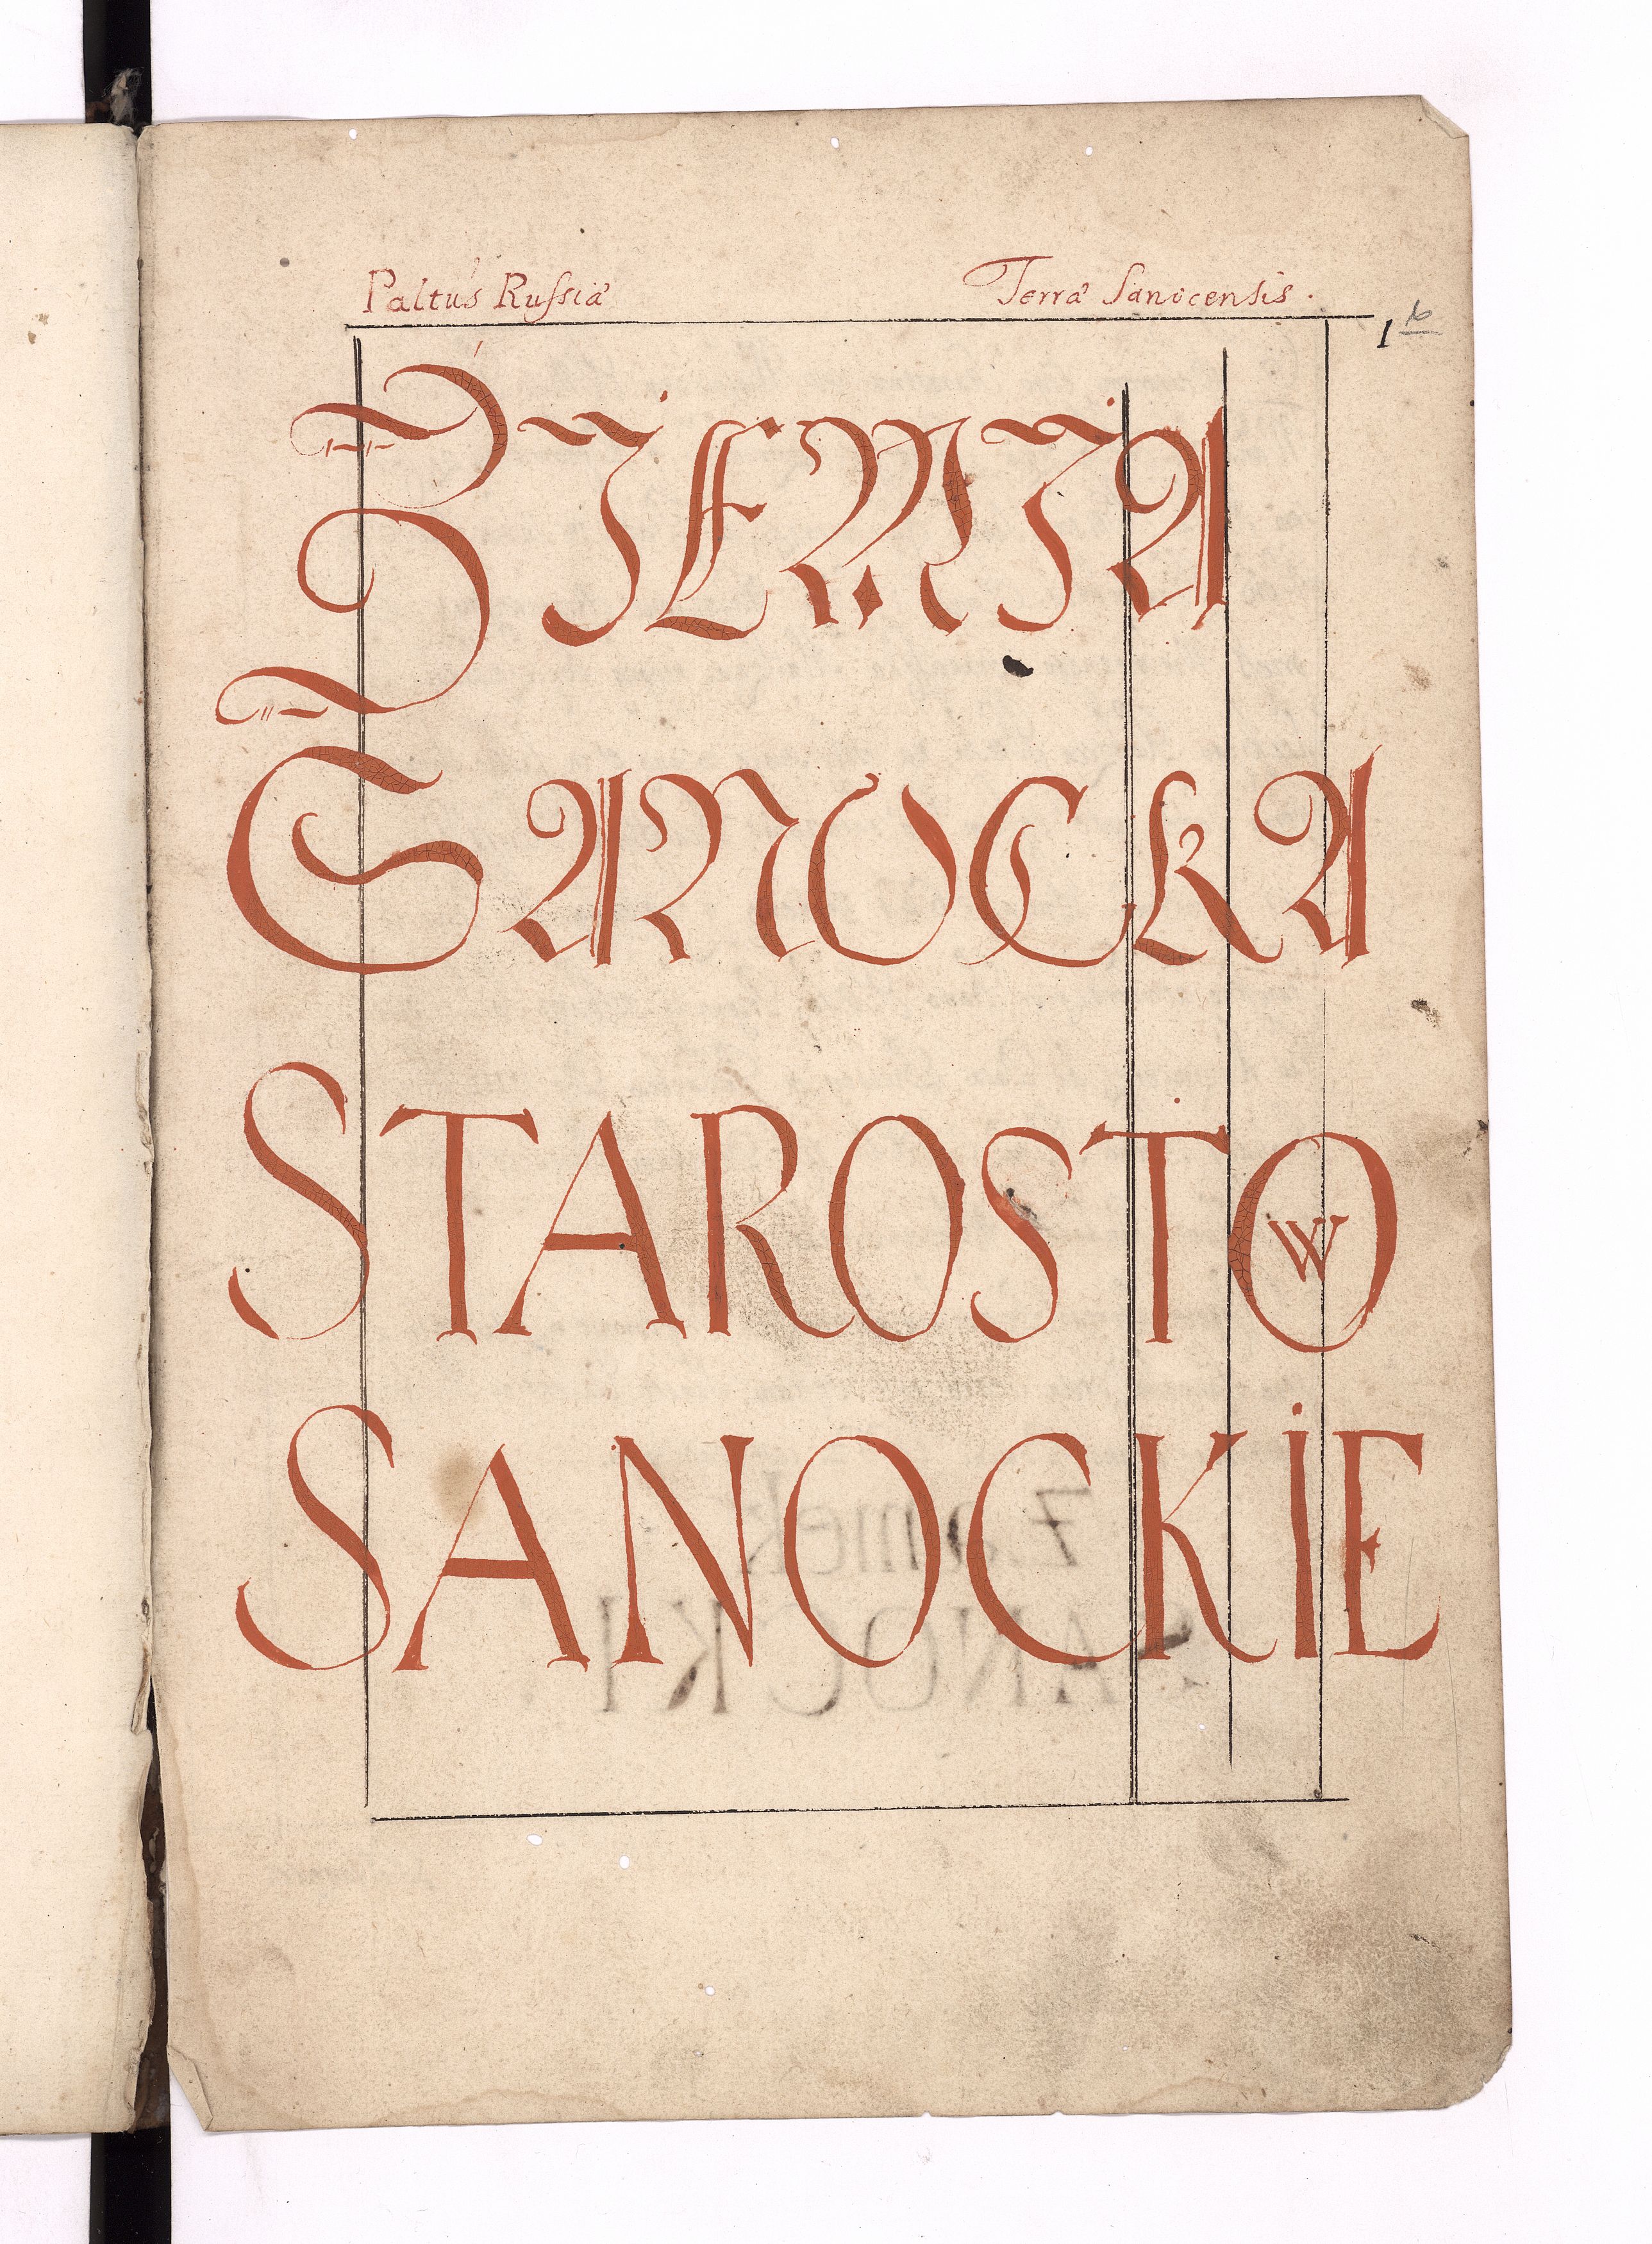 Paltus Russiæ Terræ Sanocensis.
1
ZIEMIA
SANOCKA
STAROSTOW
SANOCKIE
Zamek
SANOCKI